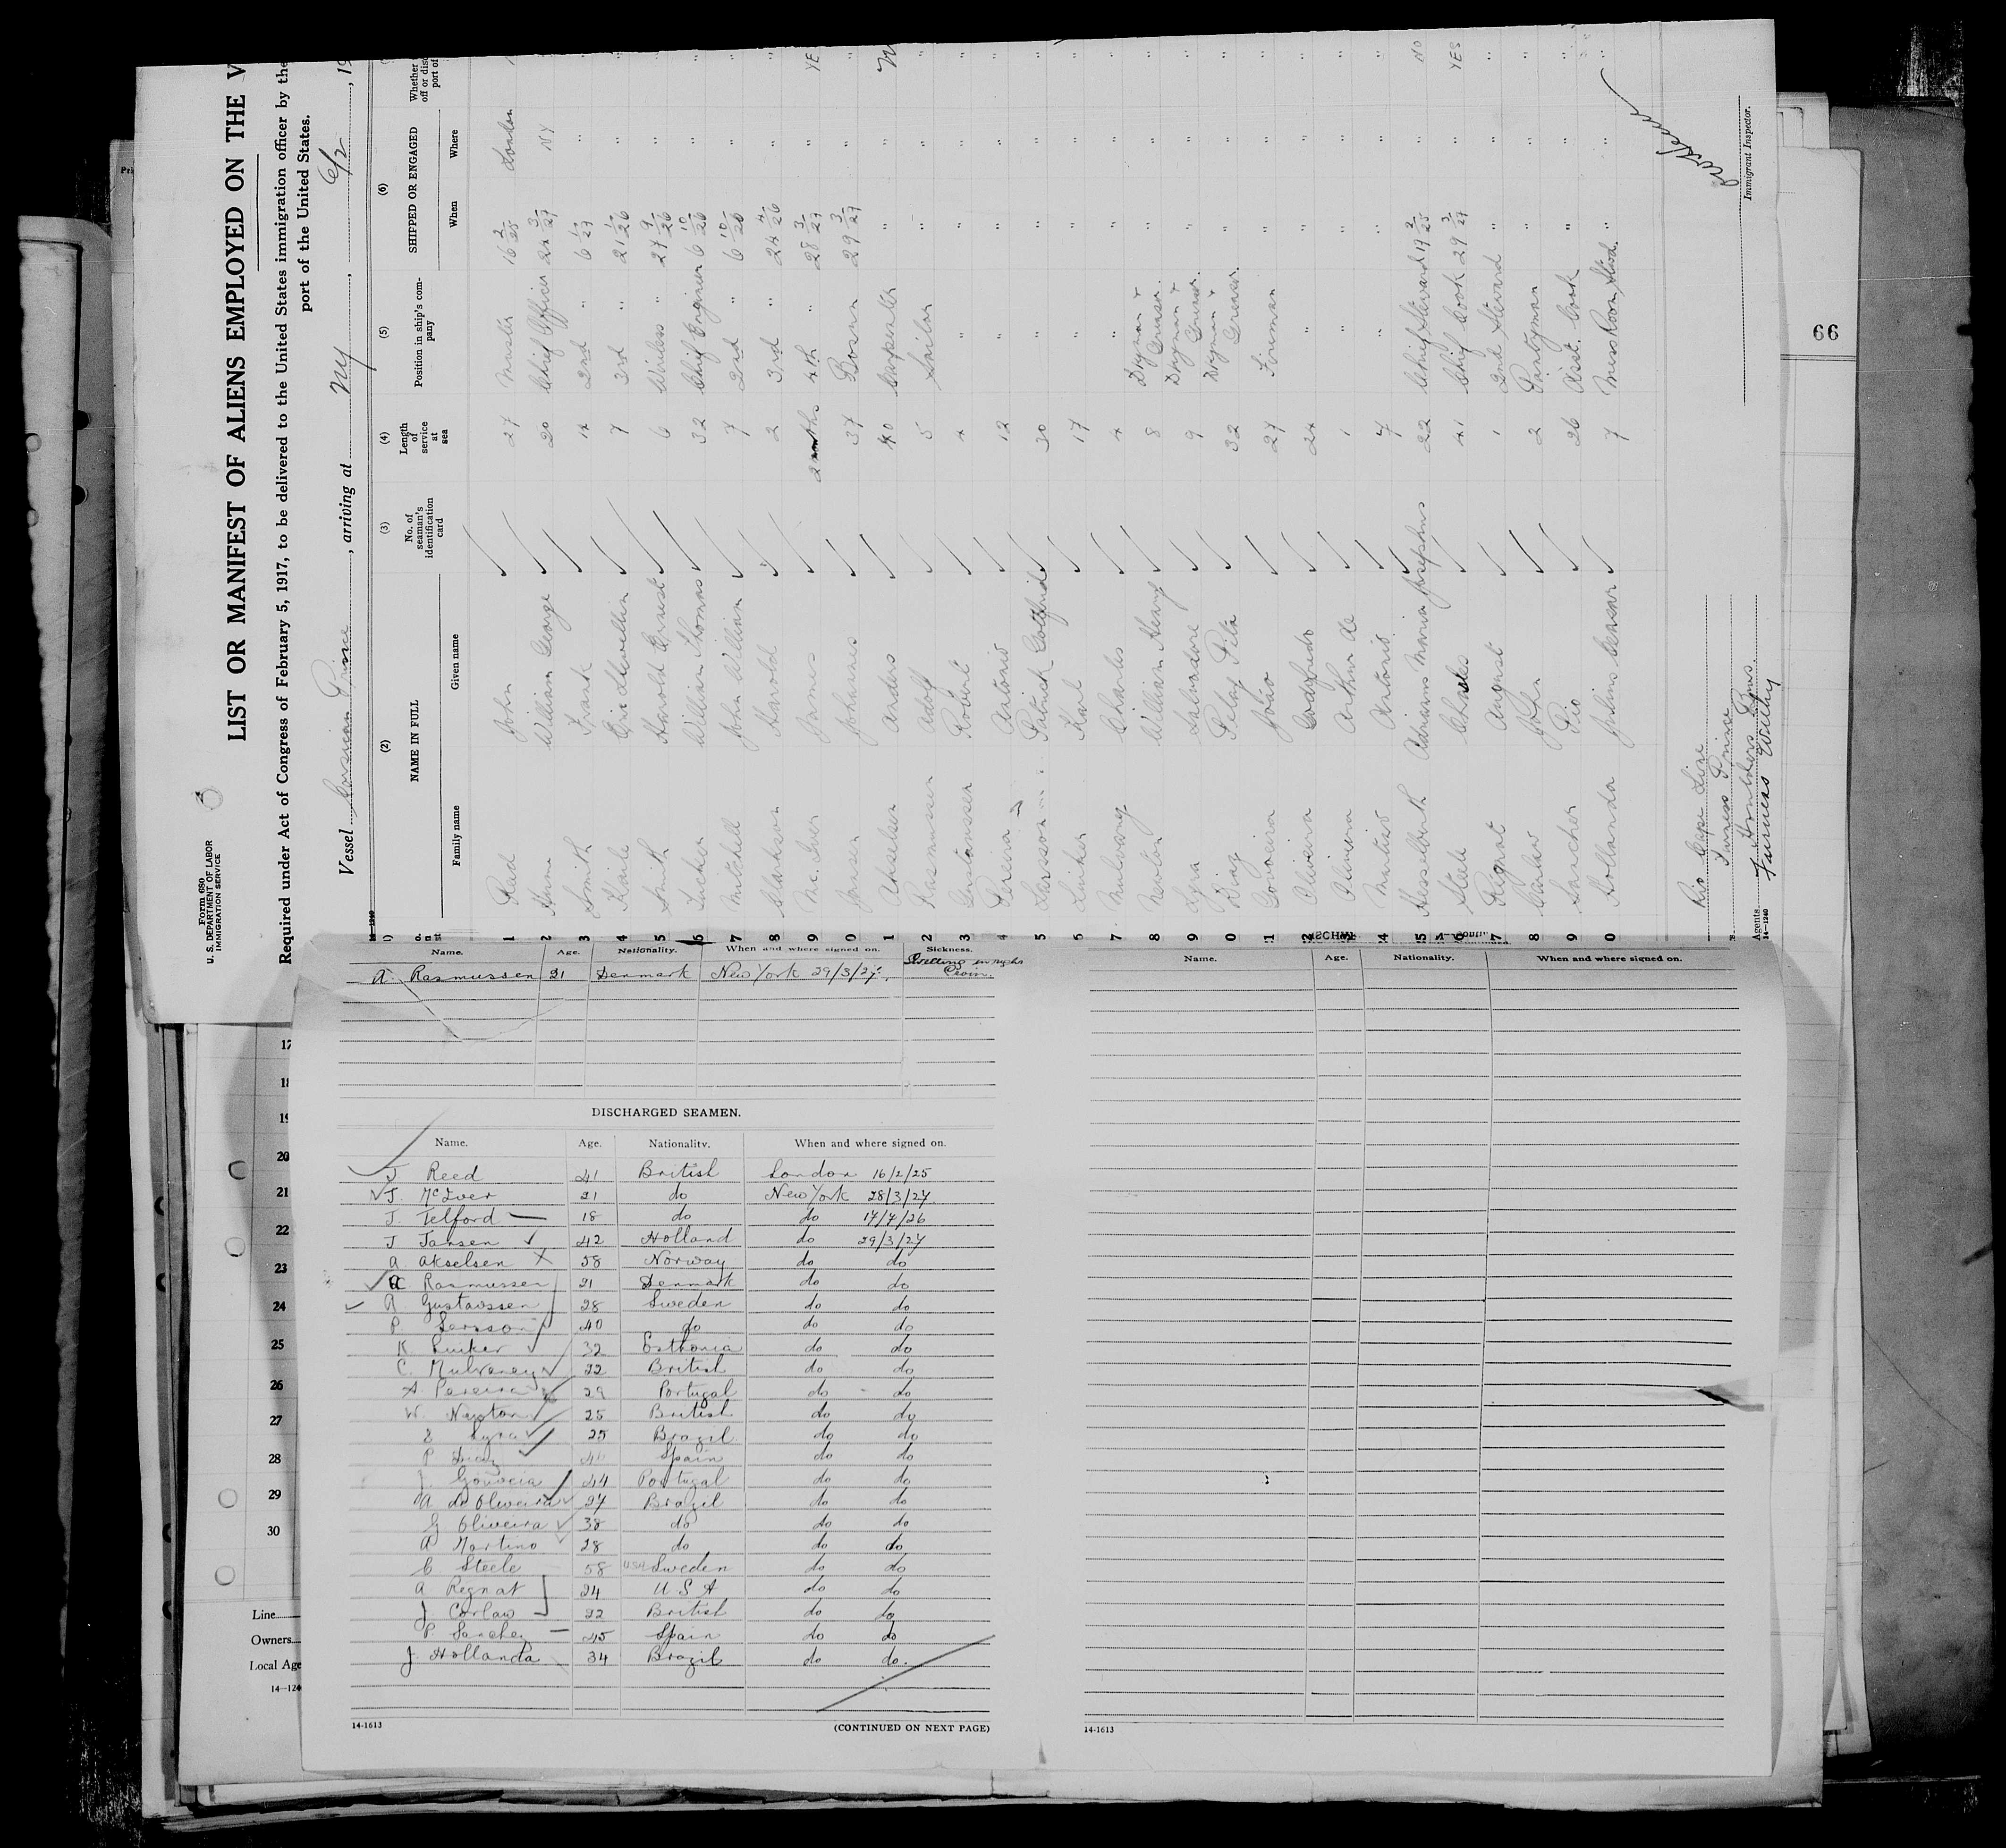 Form 680
U. S. DEPARTMENT OF LABOR
IMMIGRATION SERVICE
LIST OR MANIFEST OF ALIENS EMPLOYED ON THE V
Required under Act of Congress of February 5, 1917, to be delivered to the United States immigration officer by the
port of the United States.
Vessel Corsican Prince, arriving at NY, 6/2, 19
(2) (3) (4) (5) (6)
NAME IN FULL No. of seaman's identification card Length of service at sea Position in ship's company SHIPPED OR ENGAGED Whether
Family name Given name When Where
1 Reed John 27 Master 16 2/25 London
2 Hume William George 20 Chief Officer 24 3/27 NY
3 Smith Frank 14 2nd " 6 1/27 "
4 Eric Llewellin 7 3rd " 21 1/26 "
5 Smith Harold Ernest 6 Wireless " 27 9/26 "
6 Tucker William Thomas 32 Chief Engineer 6 10/26 "
7 Mitchell John William 7 2nd " 6 10/26 "
8 Clarkson Harold 2 3rd " 24 4/26 "
9 Mc Iver James 2 mths 4th " 28 3/27 " YE
0 Jansen Johannes 37 Bosun 29 3/27 " "
1 Akselsen Anders 40 Carpenter " "
2 Rasmussen Adolf 5 Sailor " " "
3 Gustavssen Robert 4 " " " "
4 Pereira Antonio 12 " " " "
5 Larsson Patrick Gottfried 30 " " " "
6 Linker Karl 17 " " " "
7 Mulvaney Charles 4 " " " "
8 Newton William Henry 8 Dkyman + Greaser " " "
9 Lyra Salvadore 9 Dkyman + Greaser " " "
0 Diaz Pelay Pita 32 Dkyman + Greaser " " "
1 Gouveia João 27 Fireman " " "
2 Oliveira Godofredo 24 " " " "
3 Oliveira Arthur de 1 " " " "
4 Martins Antonio 7 " " " "
5 Hesselberth Adrianus Maria Josephus 22 Chief Steward 19 2/25 " NO
6 Steele Charles 41 Chief Cook 29 3/27 " YES
7 Regnat August 1 2nd Steward " " "
8 Carlaw John 2 Pantryman " " "
9 Sanchez Pio 26 Asst. Cook " " "
0 Hollanda Julius Ceasar 7 Mess Room Stwd. " " "
Rio Cape Line
Furness Prince
Agents Furness Withy
14-1240
Immigrant Inspector.
66
Name. Age. Nationality. When and where signed on. Sickness.
A. Rasmussen 21 Denmark New York 29/3/27.
DISCHARGED SEAMEN.
Name. Age. Nationality. When and where signed on.
J Reed 41 British London 16/2/25
J. McIver 21 do New York 28/3/27
J. Telford 18 do do 17/7/26
J Jansen 42 Holland do 29/3/27
A. Akselsen 58 Norway do do
A Rasmussen 21 Denmark do do
R Gustavssen 28 Sweden do do
P Larsson 40 do do do
K Linker 32 Esthonia do do
C. Mulvaney 22 British do do
A Pereira 29 Portugal do do
W. Newton 25 British do do
S Lyra 25 Brazil do do
P Diaz 40 Spain do do
J Gouveia 44 Portugal do do
A de Oliveira 27 Brazil do do
G Oliveira 38 do do do
A Martino 28 do do do
C Steele 58 USA Sweden do do
A Regnat 24 U S A do do
J Carlaw 22 British do do
P Sanchez 45 Spain do do
J. Hollanda 34 Brazil do do.
14-1613
(CONTINUED ON NEXT PAGE)
Name. Age. Nationality. When and where signed on.
14-1613
17
18
19
20
21
22
23
24
25
26
27
28
29
30
Line
Owners
Local Age
14-124